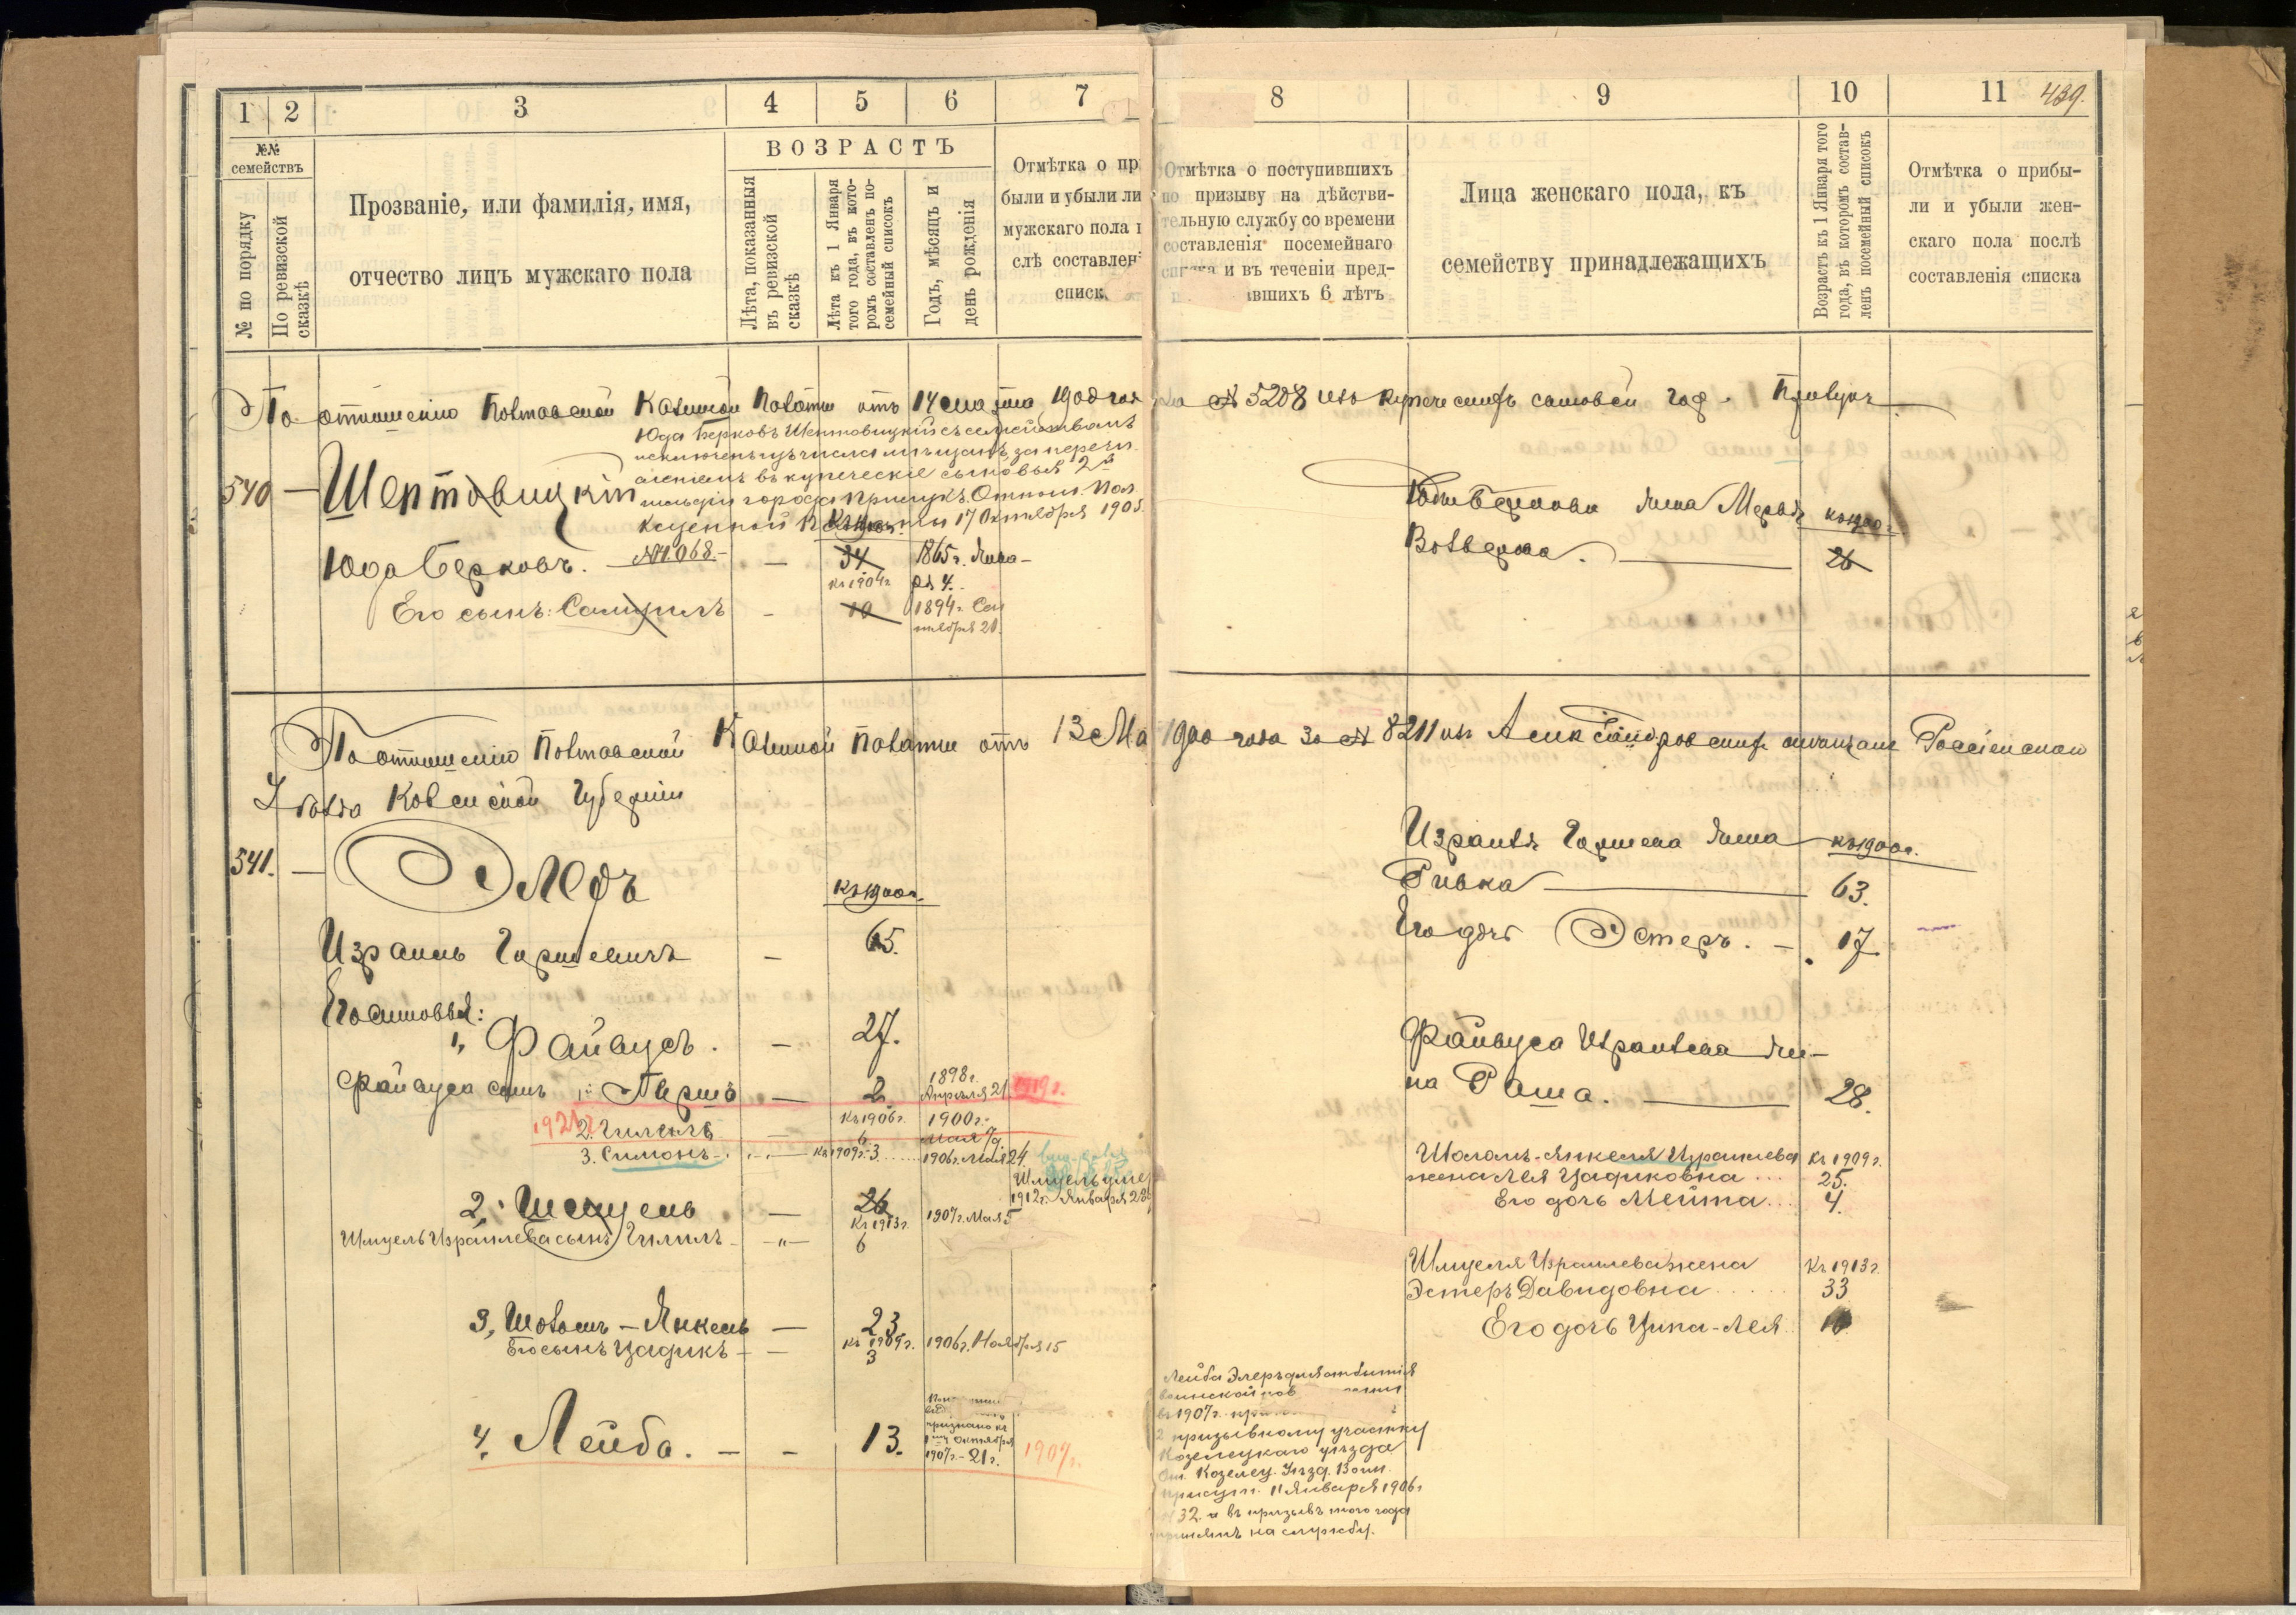 1 2 3 4 5 6 7
№№ семействъ
№ по порядку
По ревизской сказкѣ
Прозваніе, или фамилія, имя,
отчество лицъ мужскаго пола
ВОЗРАСТЪ
Лѣта, показанныя
въ ревизской
сказкѣ
Лѣта къ 1 Января
того года, въ кото-
ромъ составленъ по-
семейный списокъ
Годъ, мѣсяцъ и
день рожденія
Отмѣтка о пр
были и убыли ли
мужскаго пола
слѣ составлен
списк
По отношенію Полтавской Казенной Палаты отъ 14 1900
Юда Берковъ Шептовицкій съ семействомъ
исключенъ изъ числа мѣщанъ, за перечи
сленіемъ въ купеческіе сыновья 2й
гильдіи города Прилукъ. Отнош. Пол.
Казенной 17 Октября 190
№ 11.068.
540 — Шептовицкій
Юда Берковъ. — 34 1865 г. Янва-
ря 4.
къ 1904 г.
Его сынъ: — 10 1894 г. Сен
тября 20.
По отношенію Полтавской Казенной Палаты отъ 13 Ма
Уѣзда Ковенской Губерніи
541. — Элеръ
къ 1900 г.
Израиль Гиршевичъ — 65.
Его сыновья:
1, Файвусъ. — 27.
Файвуса сынъ 1й Гиршъ — 2 1898 г.
Апрѣля 21 1919 г.
1921
2. — къ 1906 г. 6 1900 г.
Мая 9.
3. Симонъ къ 1909 г. - 3 1906 г. Мая 24
Шмуель умер
1912 г. Января 23
2, Шмуель — 26
Шмуель Израилева сынъ — " — къ 1913 г. 6 1907 г. Мая 5
3, Шоломъ - Янкель — 23
Его сынъ Цадикъ — къ 1909 г. 3 1906 г. Ноября 15
4, Лейба. — - 13.
признано къ
1му Октября
1907 г. - 21 г.
1907 г.
8 9 10 11 439.
Отмѣтка о поступившихъ
по призыву на дѣйстви-
тельную службу со времени
составленія посемейнаго
и въ теченіи пред-
вшихъ 6 лѣтъ
Лица женскаго пола, къ
семейству принадлежащихъ
Возрастъ къ 1 Января того
года, въ которомъ состав-
ленъ посемейный списокъ
Отмѣтка о прибы-
ли и убыли жен-
скаго пола послѣ
составленія списка
№ 5208 изъ
Юды Беркова жена Мерья къ 1900 г.
26
1900 года за № 8211 изъ Александровскихъ мѣщанъ Россіенскаго
Израиля Гиршева жена къ 1900 г.
Ривка — 63.
Его дочь Эстеръ. — 17
Файвуса Израилева же-
на Раша. — 28.
Шоломъ-Янкеля Израилева къ 1909 г.
жена Лея Цадиковна ... 25.
Его дочь Мейта ... 4.
Шмуеля Израилева жена къ 1913 г.
Эстеръ Давидовна 33
Его дочь Ципа-Лея
Лейба Элеръ для отбытія
воинской пов
въ 1907 г.
2 призывному участку
Козелецкаго уѣзда
От. Козелец. Уѣзд. Воин.
присут. 11 Января 1906 г.
32 и въ призывъ того года
на службу.